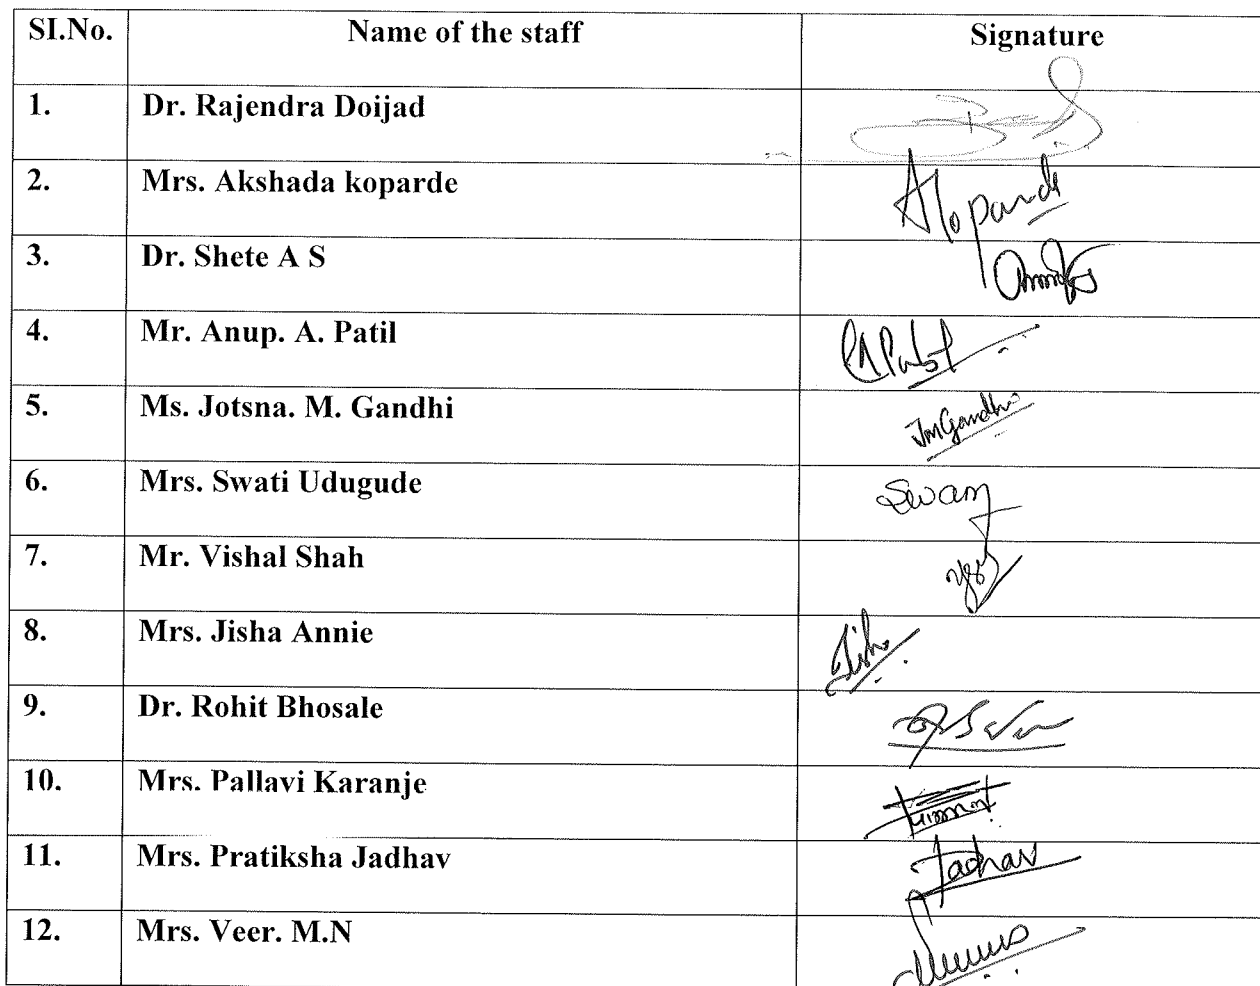 SI.No. Name of the staff Signature
1. Dr. Rajendra Doijad
2. Mrs. Akshada koparde
3. Dr. Shete A S
4. Mr. Anup. A. Patil
5. Ms. Jotsna. M. Gandhi JMGandhi
6. Mrs. Swati Udugude
7. Mr. Vishal Shah
8. Mrs. Jisha Annie Jisha
9. Dr. Rohit Bhosale
10. Mrs. Pallavi Karanje
11. Mrs. Pratiksha Jadhav Jadhav
12. Mrs. Veer. M.N